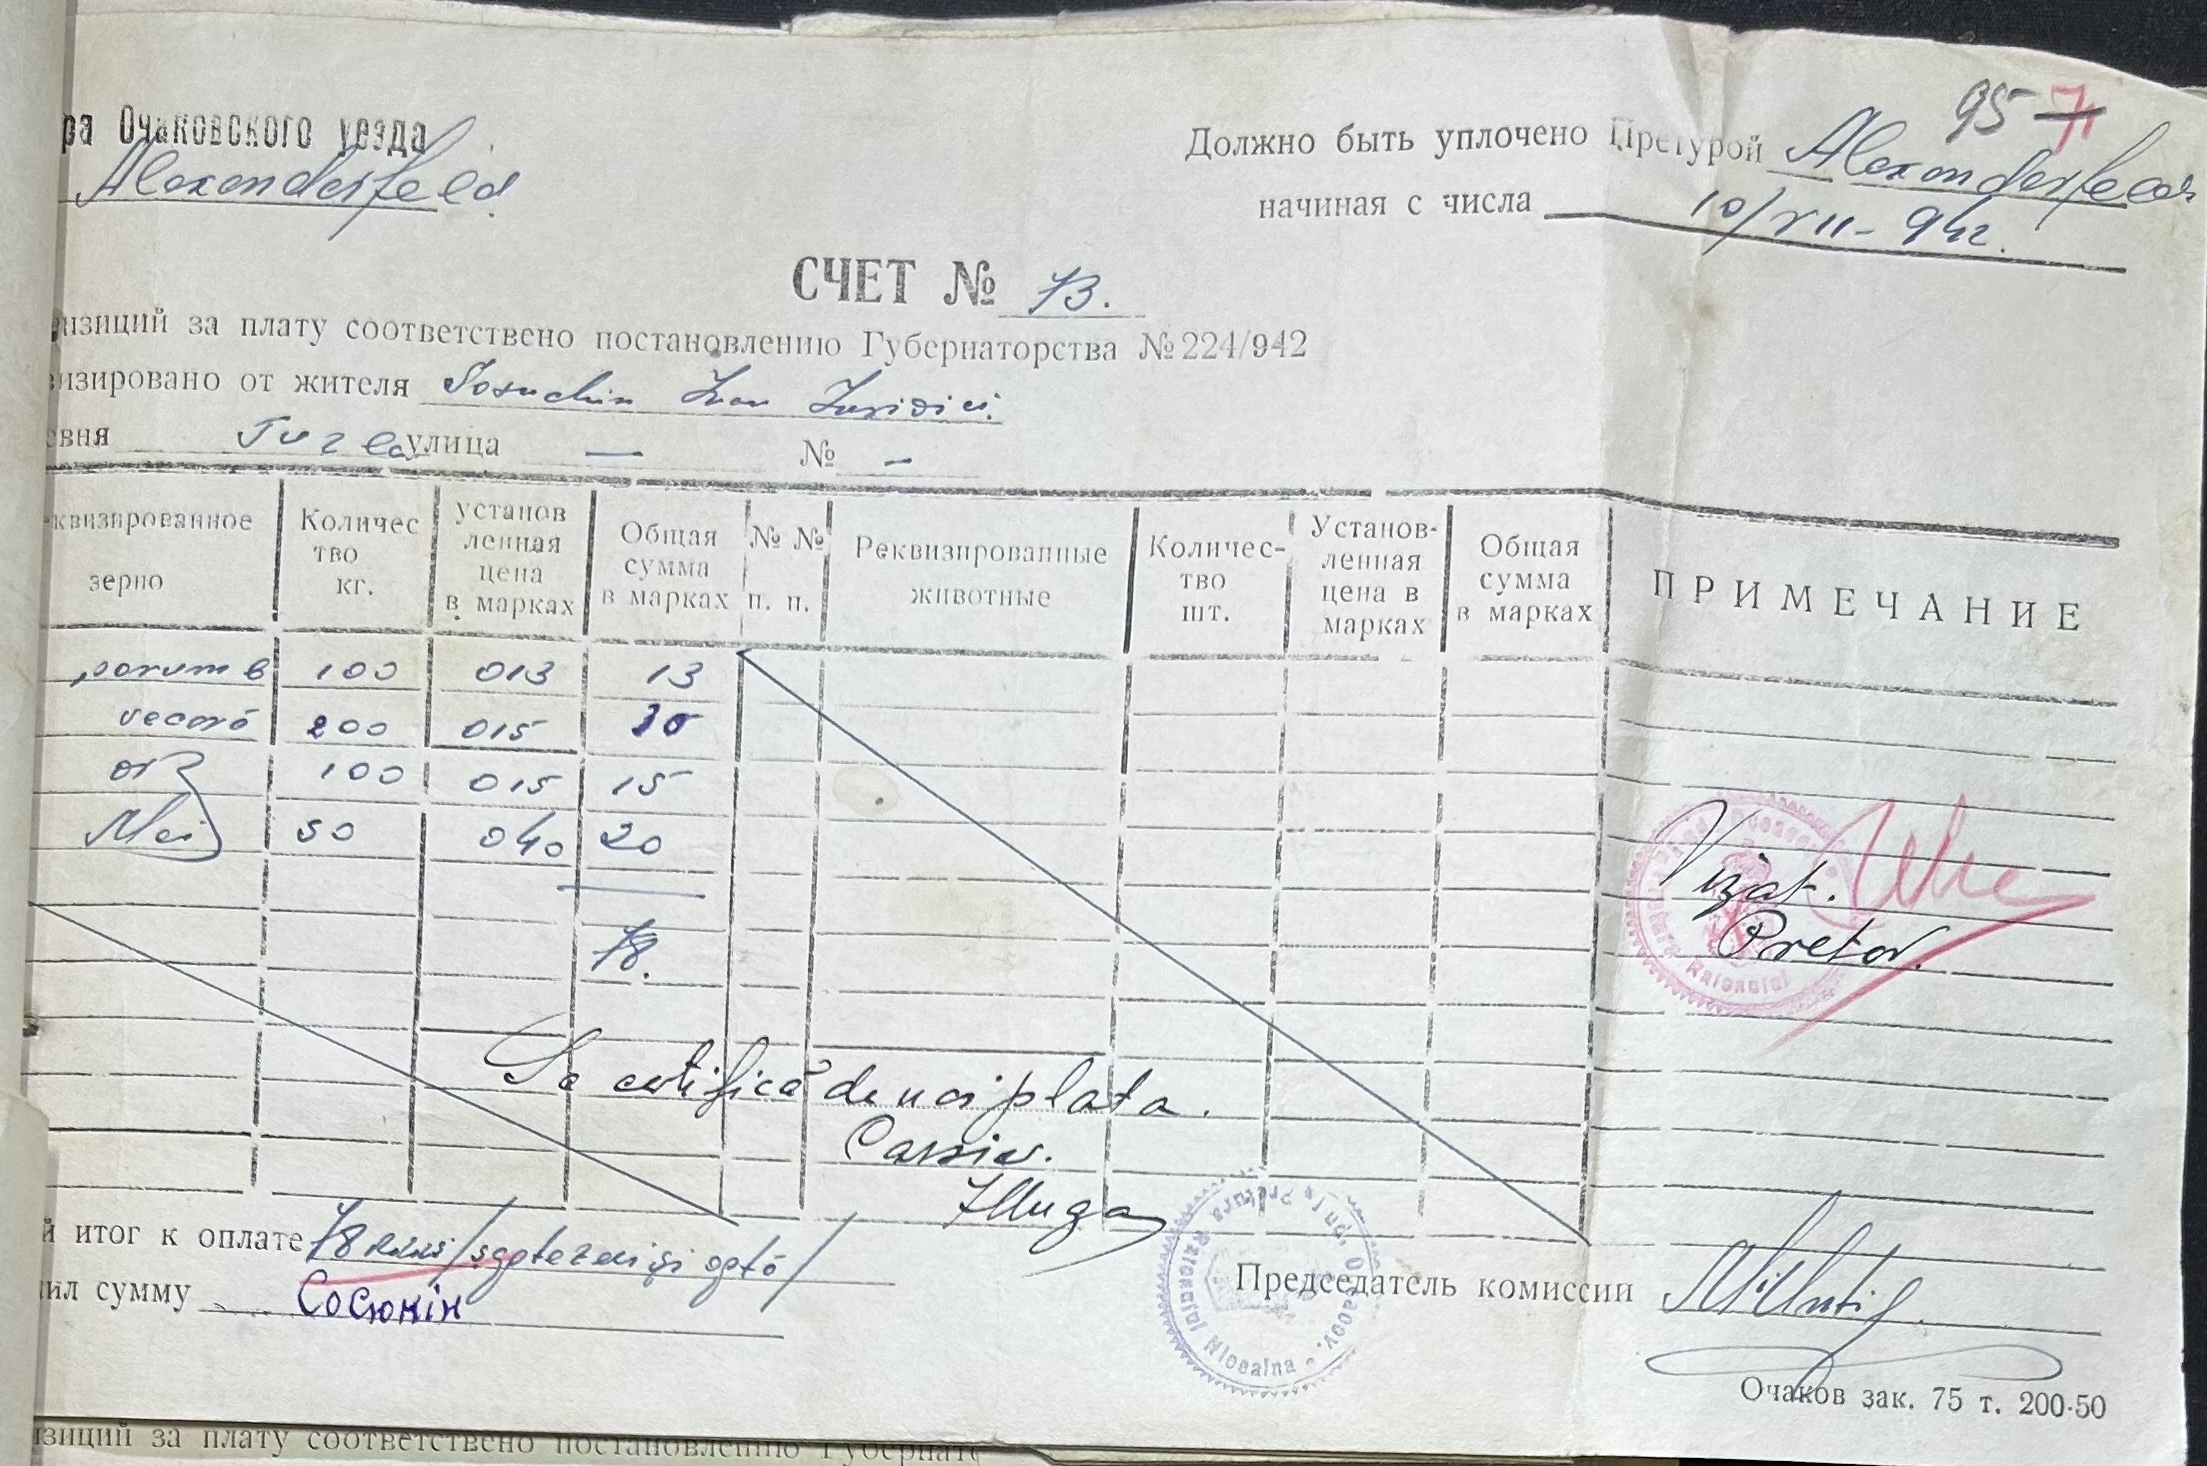 95 71
ра Очаковского уезда
Alexanderfeld
Должно быть уплочено Претурой Alexanderfeld
начиная с числа 10/VII-942.
СЧЕТ № 73.
изиций за плату соответствено постановлению Губернаторства № 224/942
изировано от жителя Sosiuchin Ivan
евня улица — № -
еквизированное зерно Количес тво кг. установ ленная цена в марках Общая сумма в марках №№ п. п. Реквизированные животные Количес- тво шт. Установ- ленная цена в марках Общая сумма в марках ПРИМЕЧАНИЕ
porumb 100 013 13
secară 200 015 30
orz 100 015 15
Mei 50 040 20
78.
Vizat.
Pretor.
Se certifică de noi plata.
Cassier.
й итог к оплате 78 /șaptezeci și opt/
ил сумму Сосюкін
Председатель комиссии
Очаков зак. 75 т. 200-50
изиций за плату соответствено постановлению Губернат